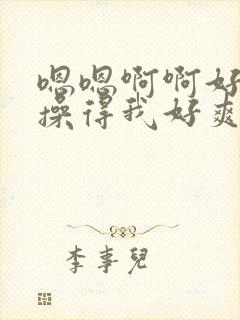 嗯嗯啊啊好
操得我好爽
李事儿